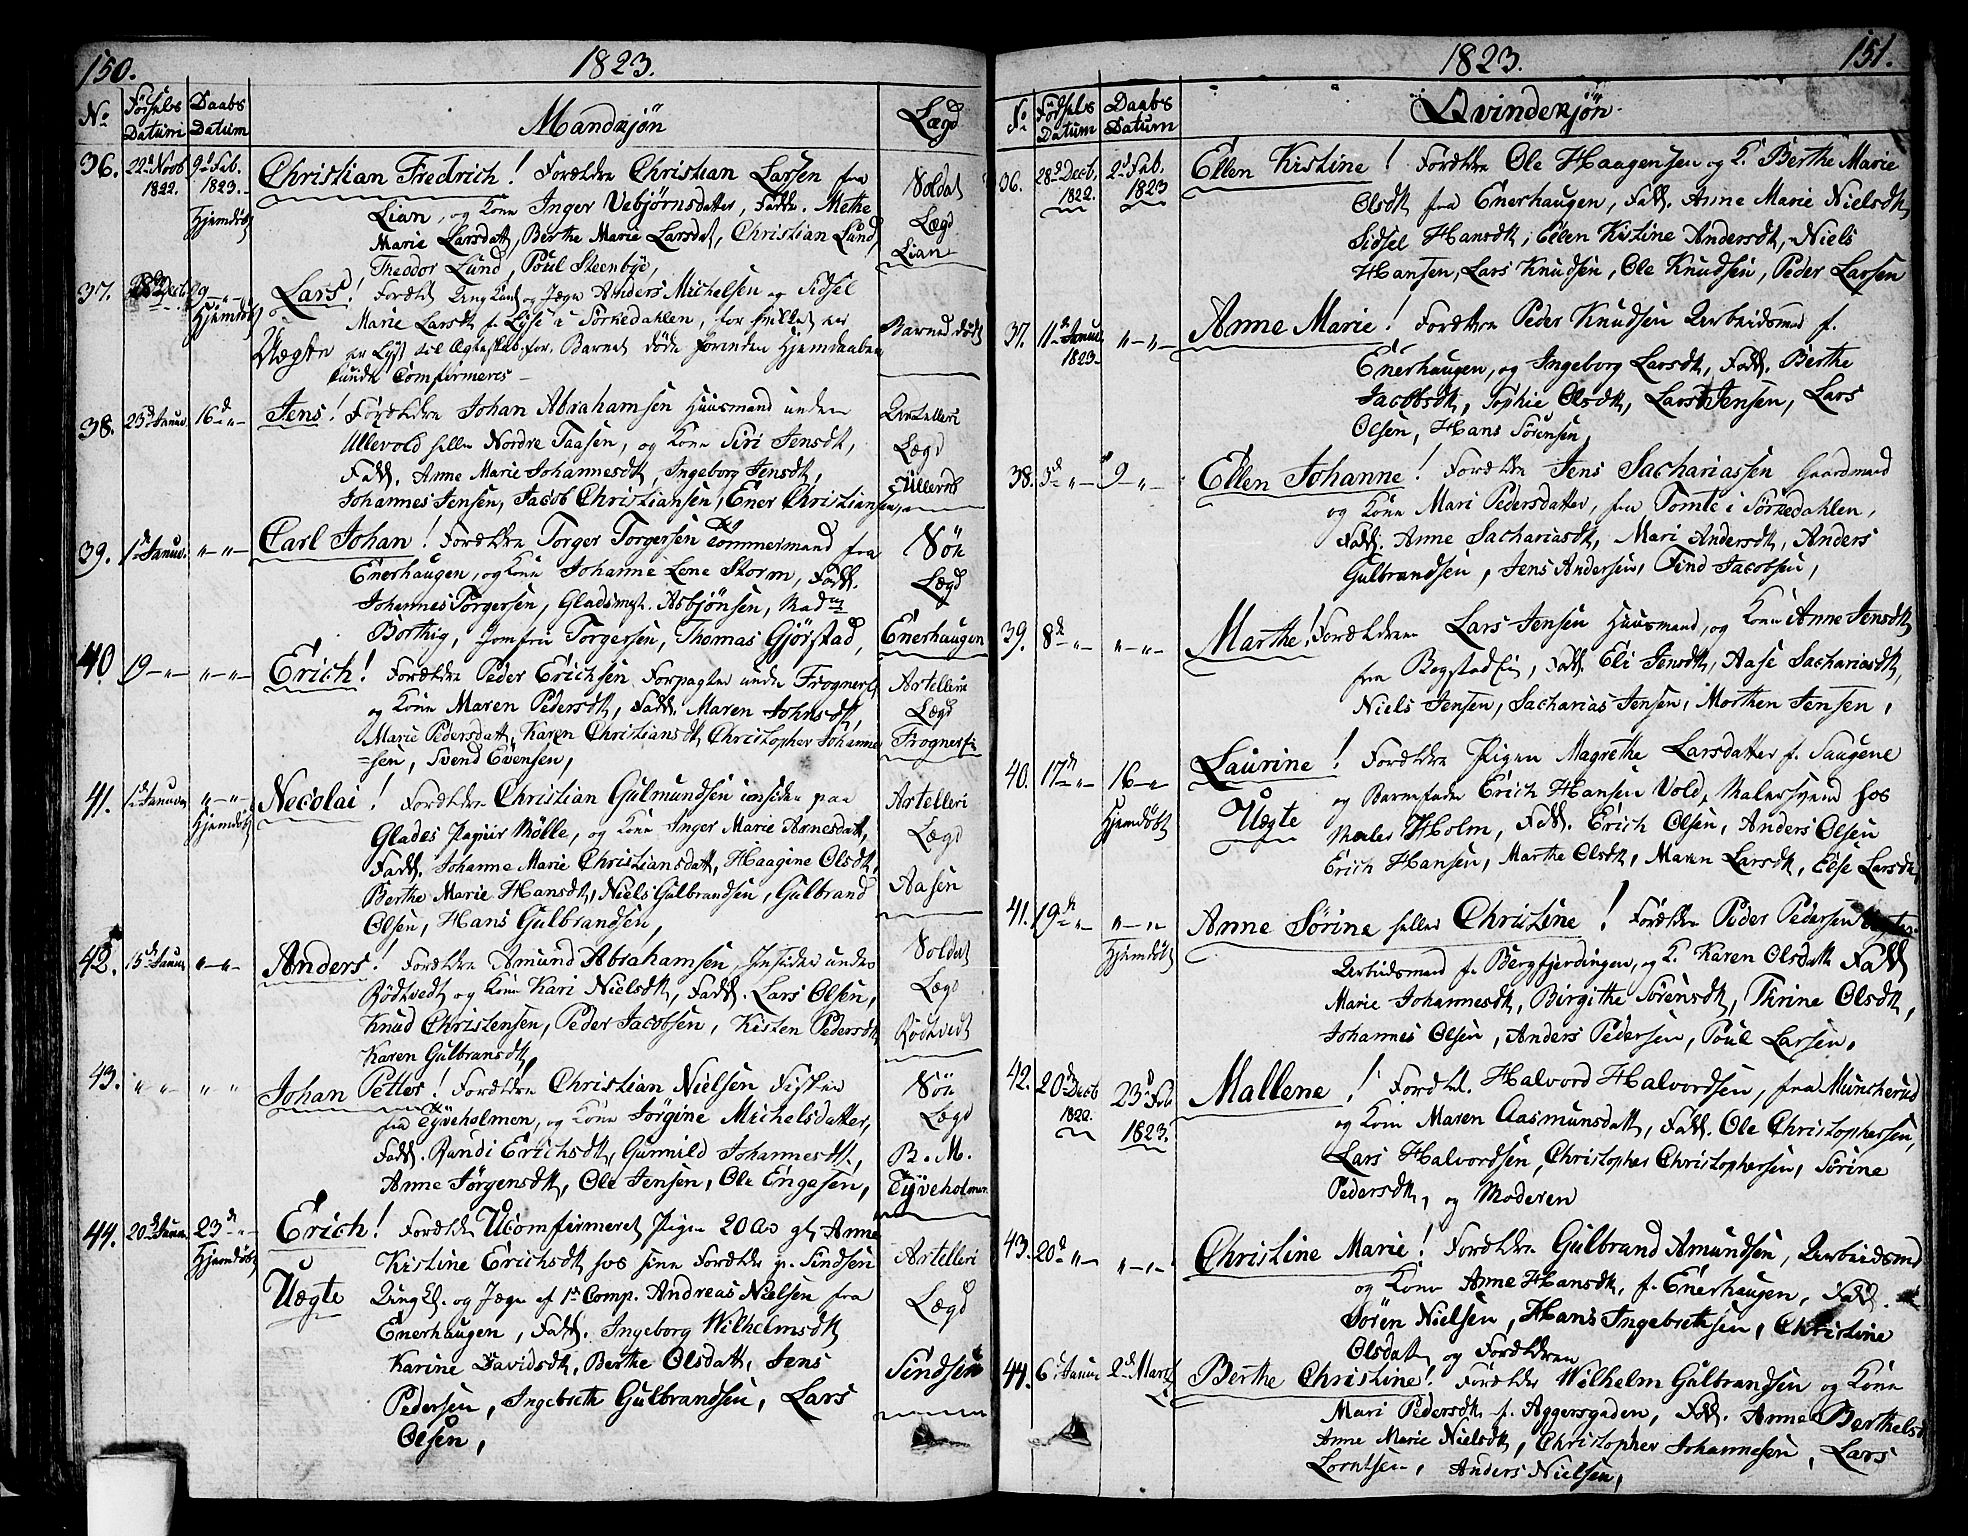 150.
1823.
No
Fødsels Datum
Daabs Datum
Mandkjön
Lægd
36. 22d Novb 1822. 9d Feb. 1823. Hjemdöbt
Christian Fredrich! Forældre Christian Larsen fra
Lian, og Kone Inger Vebjörnsdatter, Fadd. Methe
Marie Larsdatt, Berthe Marie Larsdat, Christian Lund,
Theodor Lund, Poul Steenbye,
Soldat Lægd Lian
37. Decb 9 - „ - Hjemdöbt
Lars! Forældr Ungkarl og Jæger Anders Michelsen og Sidsel
Marie Larsdt f. Lyse i Sörkedahlen, for hvilket er
Uægte er Lyst til Ægteskab, for. Barnet döde forinden Hjemdaaben
kunde Comfirmeres -
Barnet dödt
38. 23d Januar. 16d - „ -
Jens! Forældre Johan Abrahamsen Huusmand under
Ullevold heller Nordre Taasen, og Kone Siri Jensdt,
Fadd. Anne Marie Johannesdt, Ingeborg Jensdt,
Johannes Jensen, Jacob Christiansen, Ener Christiansen,
Artelleri Lægd Ullevob
39. 1st Januar. „ - „ -
Carl Johan! Forældre Torger Torgersen Tömmermand fra
Enerhaugen, og Kone Johanne Lene Storm, Fadd.
Johannes Torgersen, Gladsmst. Asbjönsen, Madm
Borthig, Jomfru Torgersen, Thomas Gjörstad,
Söe Lægd Enerhaugen
40 19 - „ - „ - „ -
Erich! Forældre Peder Erichsen Forpagter under Frogner
og Kone Maren Pedersdt, Fadd. Maren Johnsdt,
Marie Pedersdatt, Karen Christiansdt, Christopher Johanne
=sen, Svend Evensen,
Artelleri Lægd Frogner
41. 12d Januar „ - „ - Hjemdöbt
Necolai! Forældre Christian Gulmundsen insider paa
Glades Papiir Mölle, og Kone Inger Marie Arnesdatt,
Fadd. Johanne Marie Christiansdatt, Haagine Olsdt,
Berthe Marie Hansdt, Niels Gulbrandsen, Gulbrand
Olsen, Hans Gulbrandsen,
Artelleri Lægd Aasen
42. 15d Januar „ - „ -
Anders! Forældre Amund Abrahamsen, Insider under
Rödtvedt og Kone Kari Nielsdt, Fadd. Lars Olsen,
Knud Christensen, Peder Jacobsen, Kisten Pedersdt
Karen Gulbransdt,
Soldat Lægd Rödtvedt
43. „ „ „ „
Johan Petter! Forældre Christian Nielsen Fisker
fra Tyveholmen, og Kone Jörgine Michelsdatter,
Fadd. Randi Erichsdt, Gunnild Johannesdt,
Anne Jörgensdt, Ole Jensen, Ole Engesen,
Söe Lægd B. M. Tyveholmen
44. 20d Januar. 23d - „ - Hjemdöbt
Erich! Forældre Ucomfirmeret Pigen 20 Aar gl. Anne
Kistine Erichsdt hos sine Forældre p. Sindsen
Uægte Ungk. og Jæger af 1st Comp. Andreas Nielsen fra
Enerhaugen, Fadd. Ingeborg Wilhelmsdt
Karine Davidsdt, Berthe Olsdatt, Jens
Pedersen, Ingebreth Gulbrandsen, Lars
Olsen,
Artelleri Lægd Sindsen
1823.
151.
No
Födsels Datum
Daabs Datum
Qvindekjön
36. 28d Decb. 1822. 2d Feb. 1823
Ellen Kistine! Forældre Ole Haagensen og K. Berthe Marie
Olsdt fra Enerhaugen, Fadd. Anne Marie Nielsdt
Sidsel Hansdt, Ellen Kistine Andersdt, Niels
Hansen, Lars Knudsen, Ole Knudsen, Peder Larsen
37. 11te Januar 1823 „ - „ -
Anne Marie! Forældre Peder Knudsen Arbeidsmd f.
Enerhaugen, og Ingeborg Larsdt, Fadd. Berthe
Jacobsdt, Sophie Olsdt, Lars Jensen, Lars
Olsen, Hans Sörensen,
38. 3d - „ - 9 - „ -
Ellen Johanne! Forældre Jens Sachariassen Gaardmand
og Kone Mari Pedersdatter, fra Tomte i Sörkedahlen,
Fadd. Anne Sachariasdt, Mari Andersdt, Anders
Gulbrandsen, Jens Andersen, Find Jacobsen,
39. 8d - „ - „ - „ -
Marthe! Forældrene Lars Jensen Huusmand, og Kone Anne Jensdt
fra Bogstad, Fadd. Eli Jensdt, Aase Sachariasdt,
Niels Jensen, Sacharias Jensen, Morthen Jensen,
40. 17d - „ - 16 - „ Hjemdöbt
Laurine! Forældre Pigen Magrethe Larsdatter f. Saugene
og Barnefader Erich Hansen Vold, Malersvend hos
Uægte Maler Holm, Fadd. Erich Olsen, Anders Olsen
Erich Hansen, Marthe Olsdt, Maren Larsdt, Else Larsdt,
41. 19d - „ - „ - „ Hjemdöbt
Anne Sörine heller Christine! Forældre Peder Pedersen
Arbeidsmand f. Bergfjerdingen, og K. Karen Olsdatt Fadd
Marie Johannesdt, Birgithe Sörensdt, Thrine Olsdt,
Johannes Olsen, Anders Pedersen, Poul Larsen,
42. 20d Decb 1822. 23d Feb 1823.
Mallene! Foræld. Halvord Halvordsen, fra Muncherud
og Kone Maren Aasmunsdatt, Fadd. Ole Christophersen,
Lars Halvordsen, Christopher Christophersen, Sörine
Pedersdt, og Moderen
43. 20d „ - „ - „ -
Christine Marie! Forældre Gulbrand Amundsen, Arbeidsmd
og Kone Anne Hansdt, f. Enerhaugen, Fadd.
Sören Nielsen, Hans Ingebretsen, Christine
Olsdatt og Forældrene
44. 6t Januar 2d Marts
Berthe Christine! Forældre Wilhelm Gulbrandsen og Kone
Mari Pedersdt f. Aggersgaden, Fadd. Anne Berthelsd
Anne Marie Nielsdt, Christopher Johannesen, Lars
Lorntsen, Anders Nielsen,